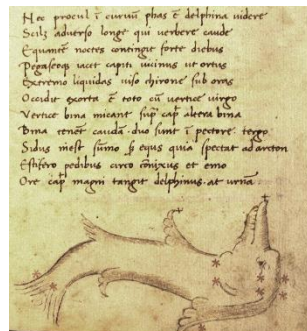 Nec procul ī cursum phas ē delphina videre
Scilz adverso longe qui verbere caude
Equantē noctes contingit forte diebus
Pegaseoqz iacet capiti vicinus ut ortus
Extremo liquidas viso chirone sub oras
Occidit exorta ē toto cū vertice virgo
Vertice bina micant sup cap altera bina
Bina tenēt caudā duo sunt ī pectore tergo
Sidus inest sūmo equs quia spectat ad arcton
pedibus circo conixus et
Ore cap magni tangit delphinus at urnā